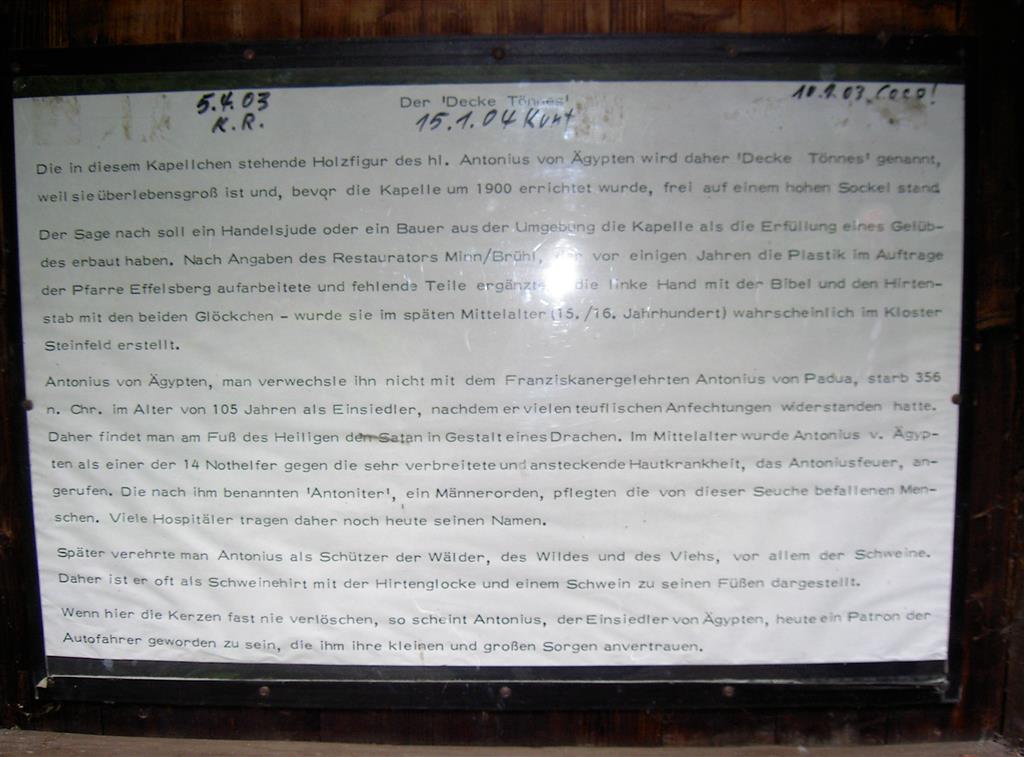 5.4.03 Der 'Decke Tönnes' 10.9.03 Coco!
K.R. 15.1.04 Kurt
Die in diesem Kapellchen stehende Holzfigur des hl. Antonius von Ägypten wird daher 'Decke Tönnes' genannt,
weil sie überlebensgroß ist und, bevor die Kapelle um 1900 errichtet wurde, frei auf einem hohen Sockel stand
Der Sage nach soll ein Handelsjude oder ein Bauer aus der Umgebung die Kapelle als die Erfüllung eines Gelüb-
des erbaut haben. Nach Angaben des Restaurators Minn/Brühl, der vor einigen Jahren die Plastik im Auftrage
der Pfarre Effelsberg aufarbeitete und fehlende Teile ergänzte die linke Hand mit der Bibel und den Hirten-
stab mit den beiden Glöckchen – wurde sie im späten Mittelalter (15./16. Jahrhundert) wahrscheinlich im Kloster
Steinfeld erstellt.
Antonius von Ägypten, man verwechsle ihn nicht mit dem Franziskanergelehrten Antonius von Padua, starb 356
n. Chr. im Alter von 105 Jahren als Einsiedler, nachdem er vielen teuflischen Anfechtungen widerstanden hatte.
Daher findet man am Fuß des Heiligen den Satan in Gestalt eines Drachen. Im Mittelalter wurde Antonius v. Ägyp-
ten als einer der 14 Nothelfer gegen die sehr verbreitete und ansteckende Hautkrankheit, das Antoniusfeuer, an-
gerufen. Die nach ihm benannten 'Antoniter', ein Männerorden, pflegten die von dieser Seuche befallenen Men-
schen. Viele Hospitäler tragen daher noch heute seinen Namen.
Später verehrte man Antonius als Schützer der Wälder, des Wildes und des Viehs, vor allem der Schweine.
Daher ist er oft als Schweinehirt mit der Hirtenglocke und einem Schwein zu seinen Füßen dargestellt.
Wenn hier die Kerzen fast nie verlöschen, so scheint Antonius, der Einsiedler von Ägypten, heute ein Patron der
Autofahrer geworden zu sein, die ihm ihre kleinen und großen Sorgen anvertrauen.